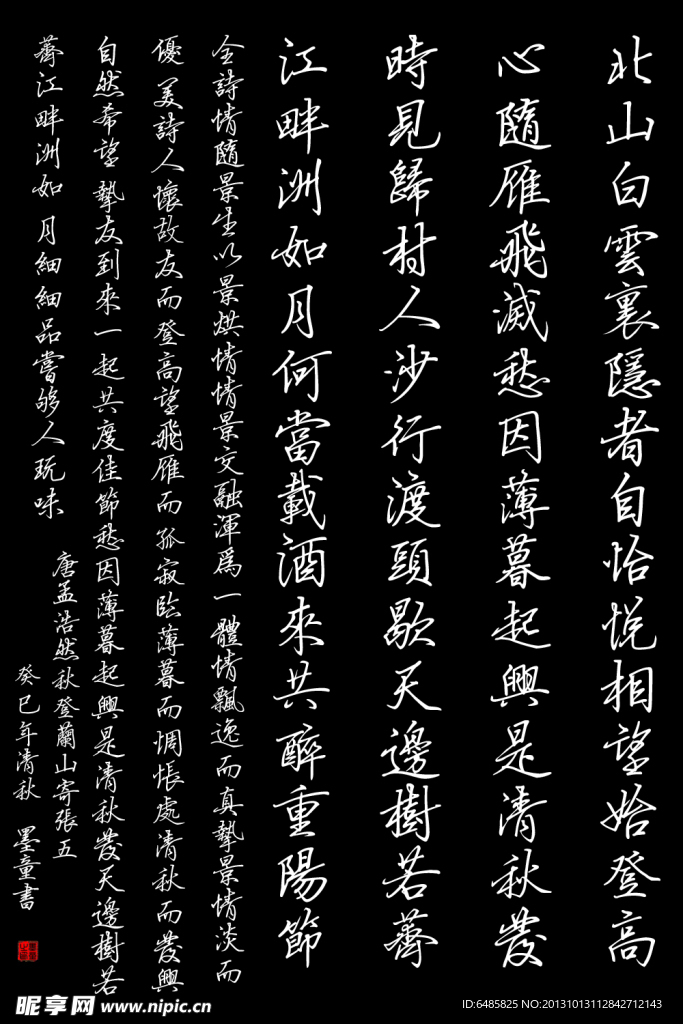 北山白雲裏隱者自怡悅相望始登高
心隨雁飛滅愁因薄暮起興是清秋發
時見歸村人沙行渡頭歇天邊樹若薺
江畔洲如月何當載酒來共醉重陽節
全詩情隨景生以景烘情情景交融渾爲一體情飄逸而真摯景情淡而
優美詩人懷故友而登高望飛雁而孤寂臨薄暮而惆悵處清秋而發興
自然希望摯友到來一起共度佳節愁因薄暮起興是清秋發天邊樹若
薺江畔洲如月細細品嘗够人玩味
唐孟浩然秋登蘭山寄張五
癸巳年清秋 墨童書
昵享网 www.nipic.cn
ID:6485825 NO:20131013112842712143